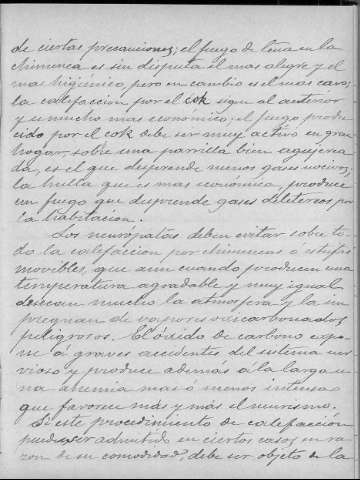 de ciertas precauciones; el fuego de leña en la
chimenea es sin disputa el mas alegre y el
mas higiénico, pero en cambio es el más caro;
la calefaccion por el cok sigue al anterior
y es mucho mas economico; el fuego produ
cido por el cok debe ser muy activo en gran
hogar, sobre una parrilla bien agujerea
da, es el que desprende menos gases nocivos;
la hulla que es mas economica, produce
un fuego que desprende gases deletereos por
la habitacion.
Los neurópatas deben evitar sobre to-
do la calefaccion por chimeneas ó estufas
movibles, que aun cuando producen una
temperatura agradable y muy igual
desecan mucho la atmosfera y la im
pregnan de vapores oxicarbonados
peligrosos. El óxido de carbono expo
ne á graves accidentes del sistema ner
vioso y produce además á la larga u-
na anemia mas ó menos intensa
que favorece más y más el nervosismo.
Si este procedimiento de calefacción
puede ser admitido en ciertos casos en ra-
zon de su comodidad, debe ser objeto de la